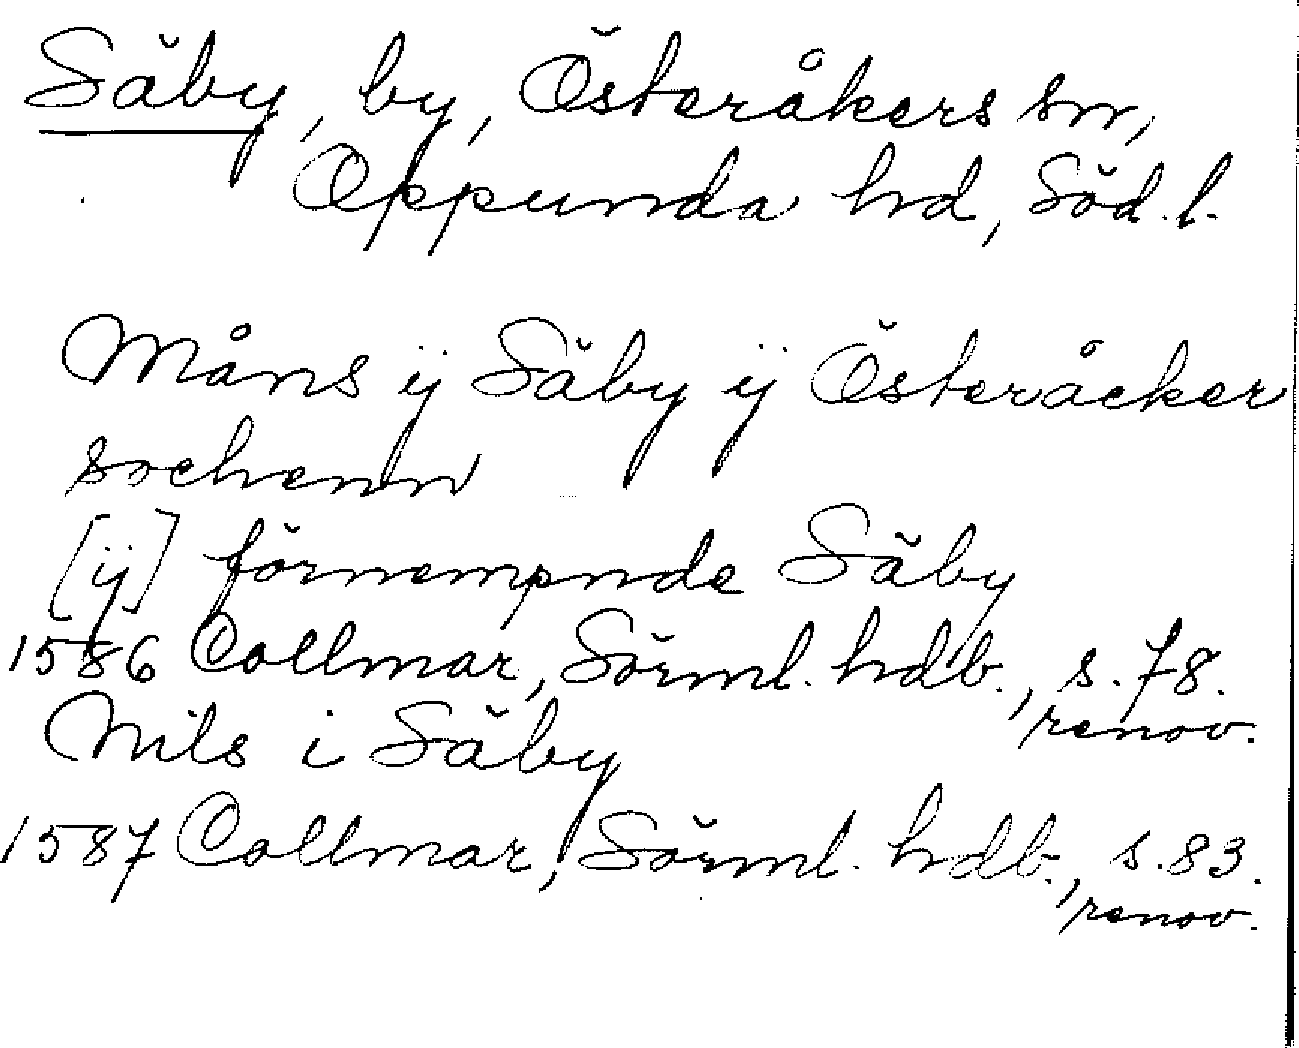 Säby, by, Österåkers sn,
Oppunda hd, Söd.l.
Måns ij Säby ij Österåcker
sochenn
[ij] förnempnde Säby
1586 Collmar, Sörml. hdb., s. 78.
renov.
Nils i Säby
1587 Collmar, Sörml. hdb., s. 83.
renov.